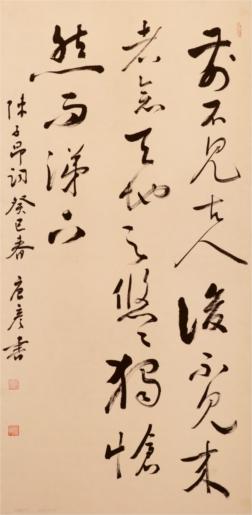 前不见古人后不见来
者念天地之悠悠独怆
然而涕下
陈子昂词癸巳春唐彦书